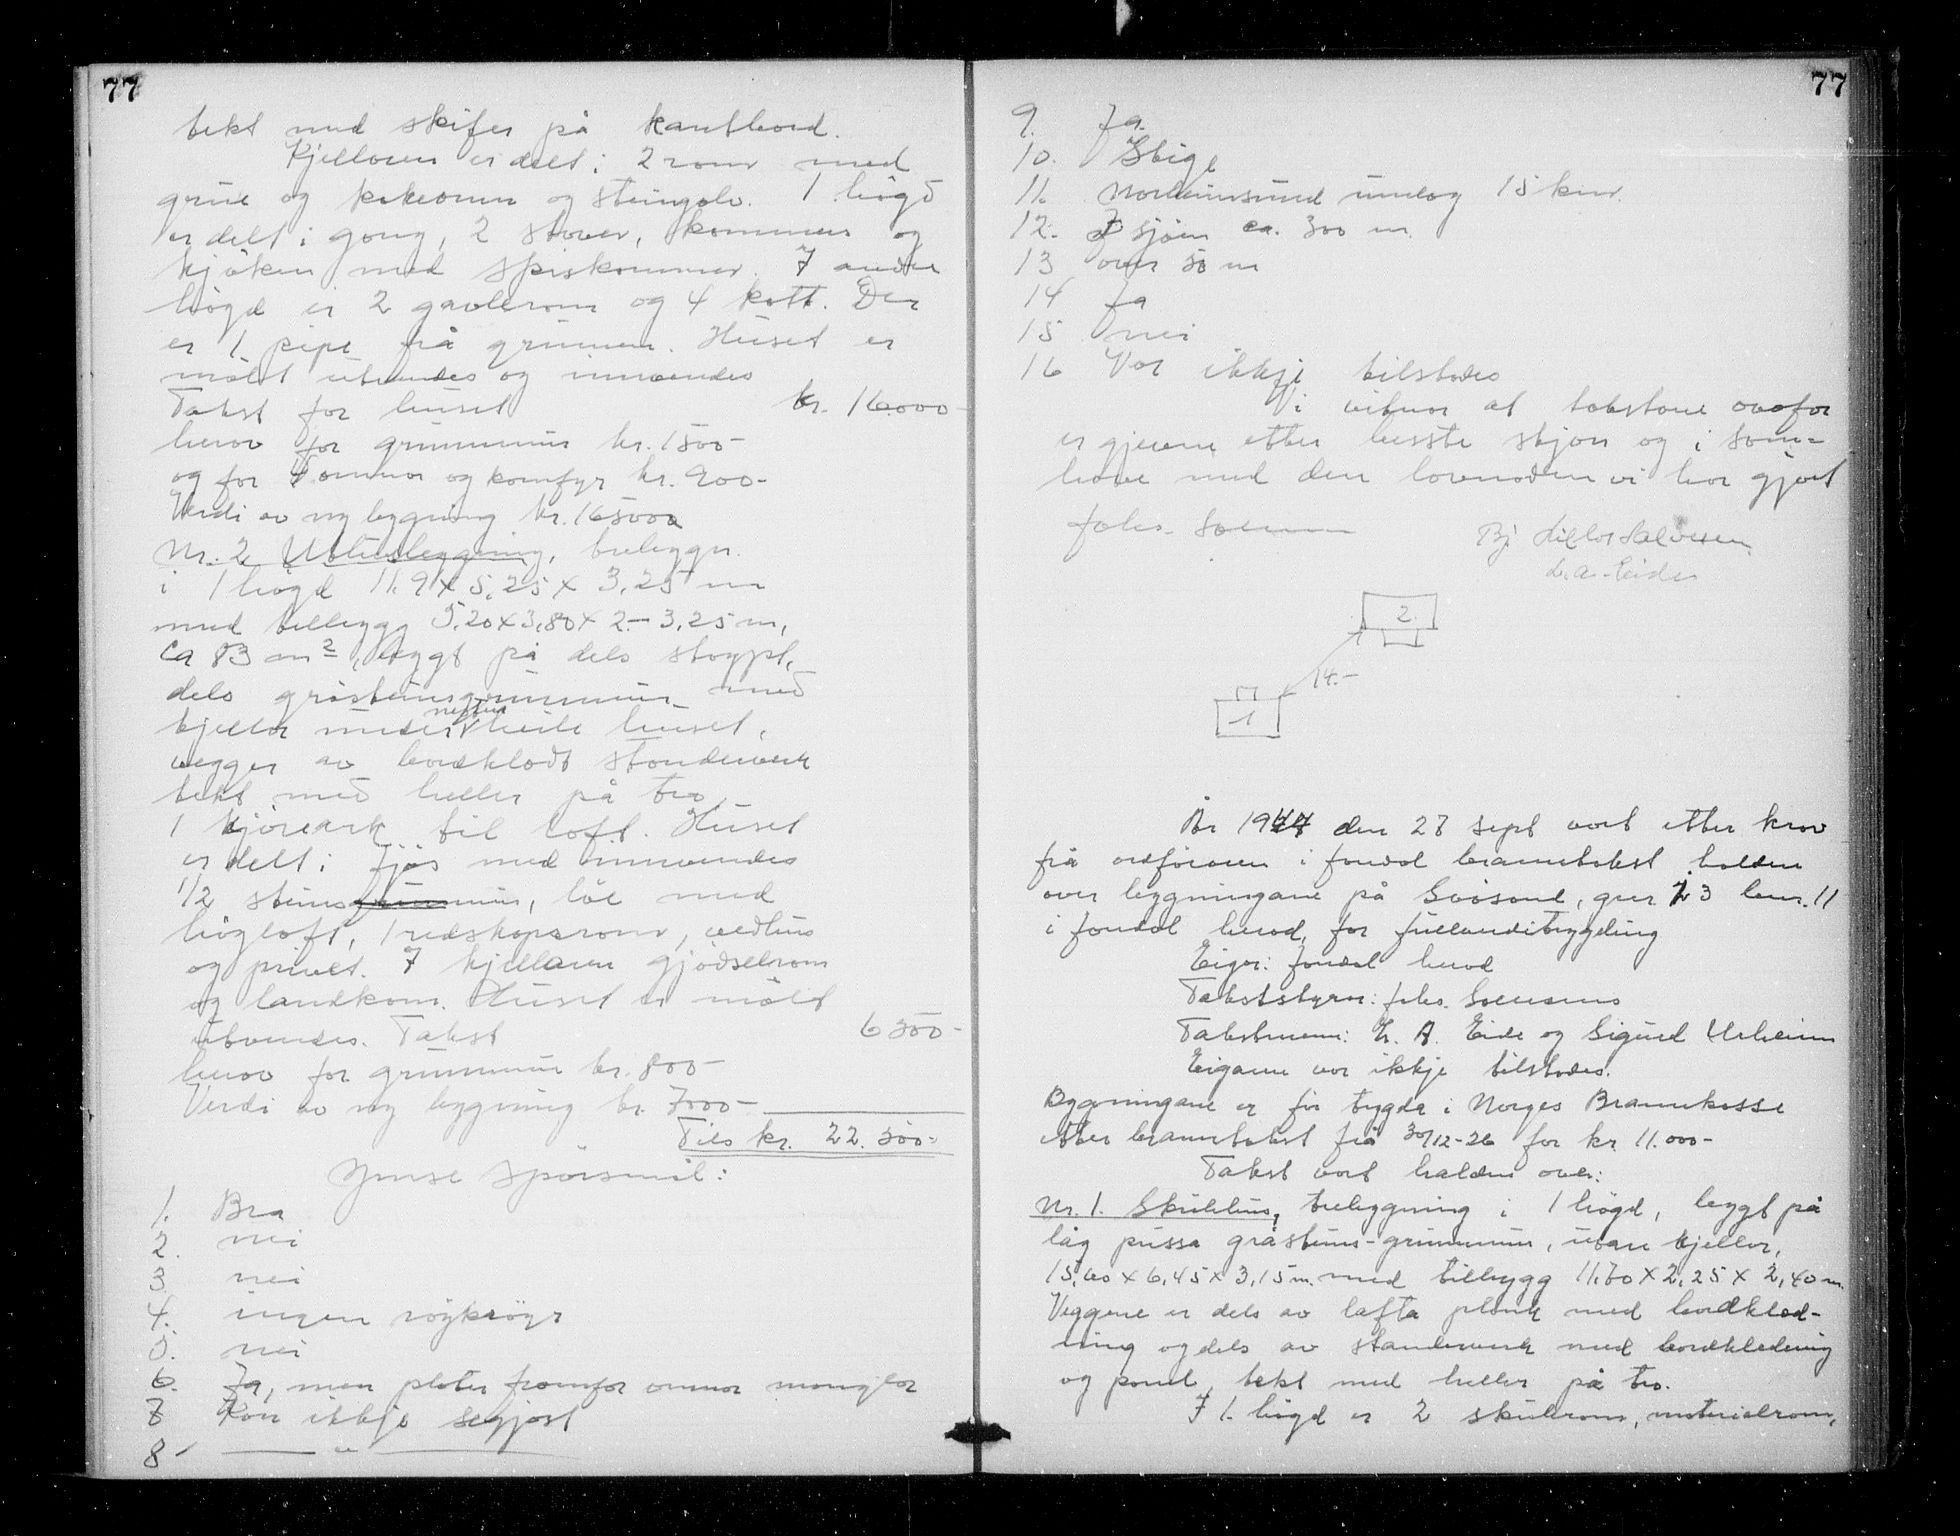 77
tekt med skifer på kantbord.
Kjellaren er delt i 2 rom med
grue og kokeomn og steingolv. 1 høgd
er delt i gong, 2 stover, kammer og
kjøken med spiskammer. I andre
høgd er 2 gavlerom og 4 kott. Der
er 1 pipe frå grunnen. Huset er
målt utvendes og innvendes
Takst for huset kr. 16.000-
herav for grunnmur kr. 1500-
og for 4 omnar og komfyr kr. 900-
Verdi av ny bygning kr. 165000
Nr. 2 Uthusbygging, trebygn.
i 1 høgd 11.9 x 5,25 x 3,25 m
med tilbygg 5,20 x 3,80 x 2.- 3,25 m,
ca 83 m², bygt på dels støypt,
dels gråsteinsgrunnmur med
kjellar under nesten heile huset,
vegger av bordklædt stenderverk
tekt med heller på tro
1 kjøreark til loft. Huset
er delt i fjøs med innvendes
1/2 steinsmur, løe med
høgloft, 1 redskapsrom, vedhus
og privet. I kjellaren gjødselrom
og landkom. Huset er målt
utvendes. Takst 6500-
herav for grunnmur kr. 800-
Verdi av ny bygning kr. 7000-
Tils kr. 22.500-
Ymse spørsmål:
1. Bra
2. nei
3 nei
4. ingen røykrøyr
5. nei
6. Ja, men plater framfor omnar manglar
7 Kan ikkje segjast
8 — " —
77
9. Ja.
10. Stige
11. Norheimsund umlag 15 km.
12. I sjøen ca. 300 m.
13 over 50 m
14 Ja
15 nei
16 Var ikkje tilstades
Vi vitnar at takstane ovafor
er gjevne etter beste skjøn og i sam-
høve med den lovnaden vi har gjort
Johs. Soensen
L. A. Eide
2.
14.-
1
År 1944 den 27 sept vart etter krav
frå ordføraren i Jondal branntakst halden
over bygningane på Svåsand, gnr 23 bnr. 11
i Jondal herad, for fullverditrygding
Eigar: Jondal herad
Takststyrar: Johs. Soensen
Takstmenn: L. A. Eide og Sigurd Urheim
Eigaren var ikkje tilstades.
Bygningane er før trygda i Norges Brannkasse
etter branntakst frå 30/12-26 for kr. 11.000-
Takst vart halden over:
Nr. 1. Skulehus, trebygning i 1 høgd, bygt på
låg pussa gråsteins-grunnmur, utan kjellar,
15,60 x 6,45 x 3,15 m. med tilbygg 11.70 x 2,25 x 2,40 m.
Veggene er dels av lafta plank med bordklæd-
ning og dels av stenderverk med bordkledning
og panel, tekt med heller på tro.
I 1. høgd er 2 skulerom, materialrom,